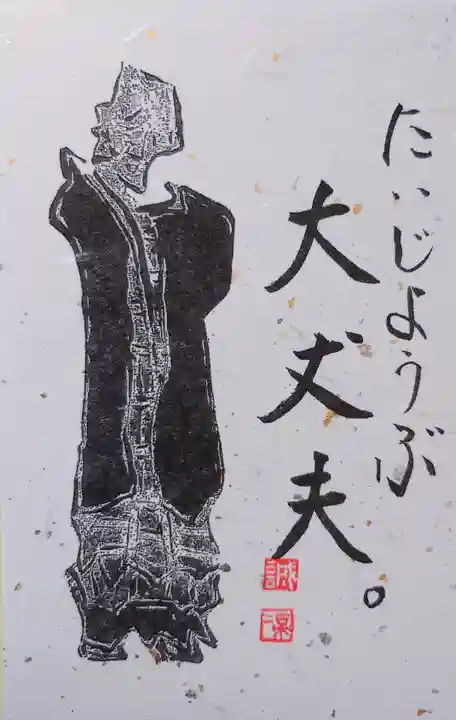 たいじようぶ
大丈夫。
誠